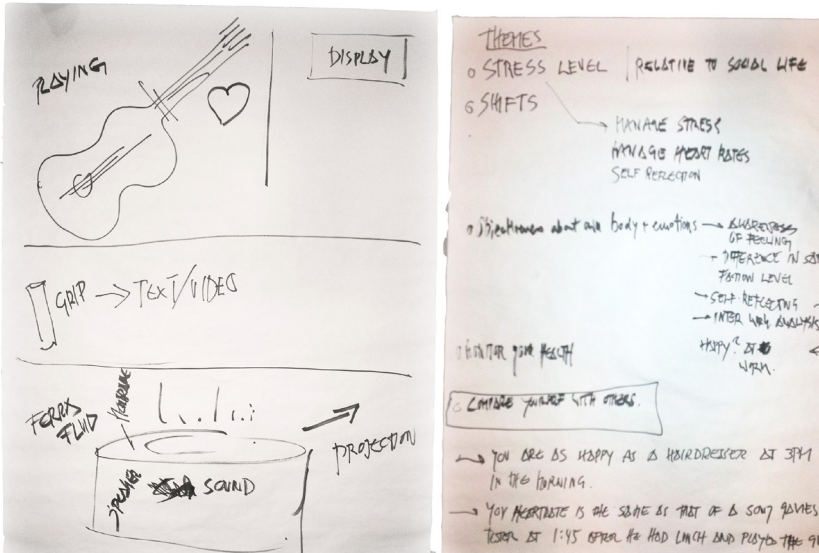 PLAYING
DISPLAY
GRIP → TEXT/VIDEO
FERRO
FLUID
SPEAKER
SOUND
PROJECTION
THEMES
STRESS LEVEL | RELATIVE TO SOCIAL LIFE
SHIFTS
→ MANAGE STRESS
MANAGE HEART RATES
SELF REFLECTION
about own body + emotions → AWARENESS
OF FEELING
→ DIFFERENCE IN
LEVEL
→ SELF-REFLECTING
→ INTER ANALYSIS
MONITOR YOUR HEALTH
HAPPY? AT
WORK.
COMPARE YOURSELF WITH OTHERS.
→ YOU ARE AS HAPPY AS A HAIRDRESSER AT 3PM
IN THE MORNING.
→ YOUR HEARTRATE IS THE SAME AS THAT OF A SONY GAMES
TESTER AT 1:45 AFTER HE HAD LUNCH AND PLAYED THE